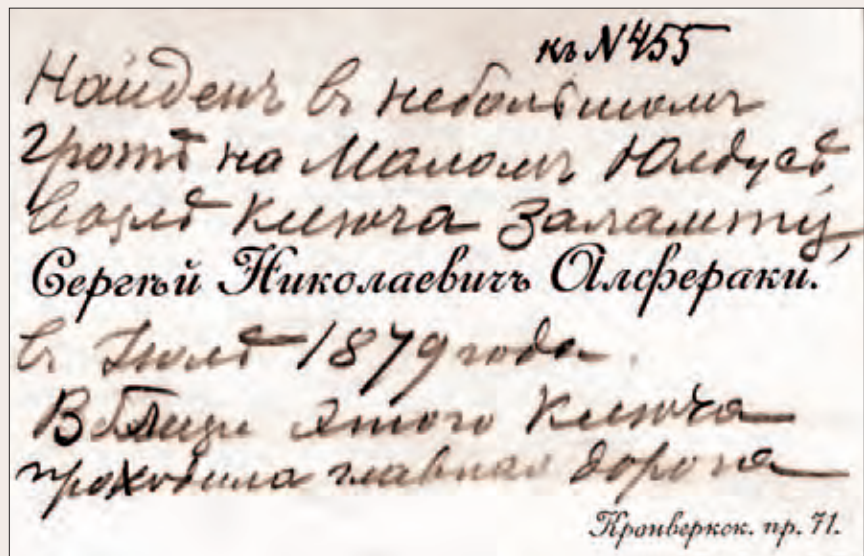 къ N 455
Найденъ въ небольшомъ
гротѣ на Маломъ Юлдусѣ,
возлѣ ключа Заламту,
Сергѣй Николаевичъ Алфераки.
въ Іюлѣ 1879 года.
Вблизи этого ключа
проходила главная дорога
Кронверкск. пр. 71.